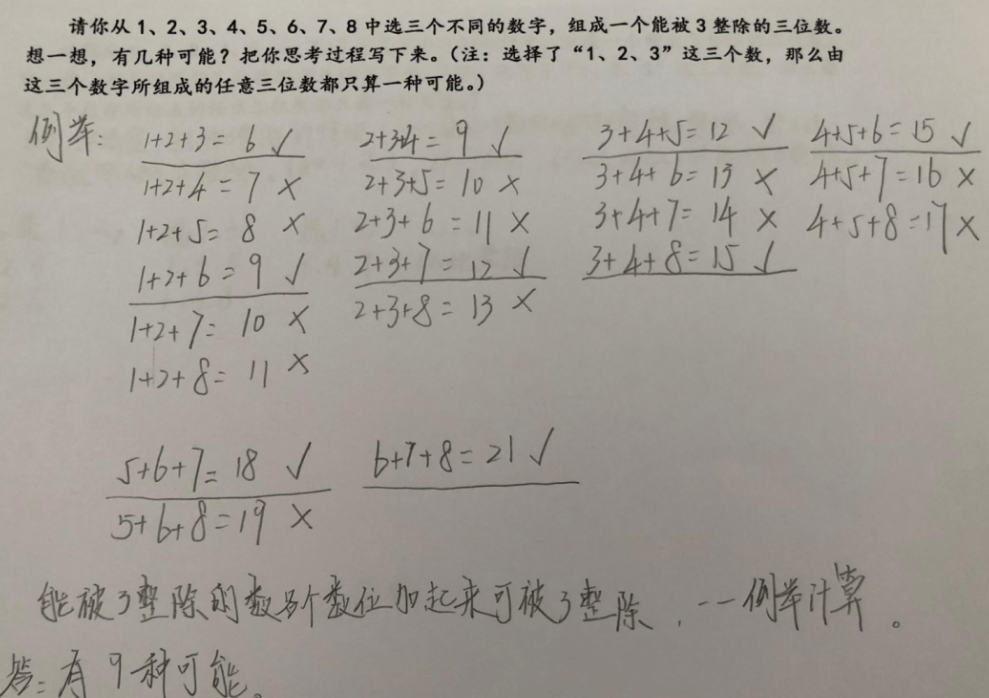 请你从 1、2、3、4、5、6、7、8 中选三个不同的数字，组成一个能被 3 整除的三位数。
想一想，有几种可能？把你思考过程写下来。（注：选择了“1、2、3”这三个数，那么由
这三个数字所组成的任意三位数都只算一种可能。）
例举：
1+2+3=6 ✓
1+2+4=7 ×
1+2+5=8 ×
1+2+6=9 ✓
1+2+7=10 ×
1+2+8=11 ×
2+3+4=9 ✓
2+3+5=10 ×
2+3+6=11 ×
2+3+7=12 ✓
2+3+8=13 ×
3+4+5=12 ✓
3+4+6=13 ×
3+4+7=14 ×
3+4+8=15 ✓
4+5+6=15 ✓
4+5+7=16 ×
4+5+8=17 ×
5+6+7=18 ✓
5+6+8=19 ×
6+7+8=21 ✓
能被3整除的数各个数位加起来可被3整除，一一例举计算。
答：有9种可能。